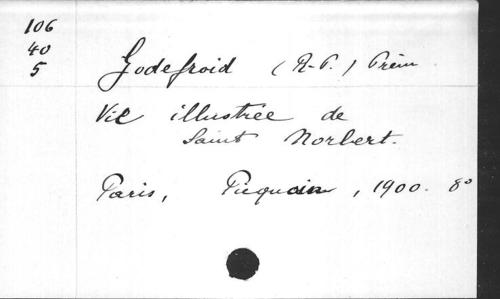 106
40
5
Godefroid (R.P.) Prém
Vie illustrée de
Saint Norbert.
Paris, Picquoin, 1900. 8°